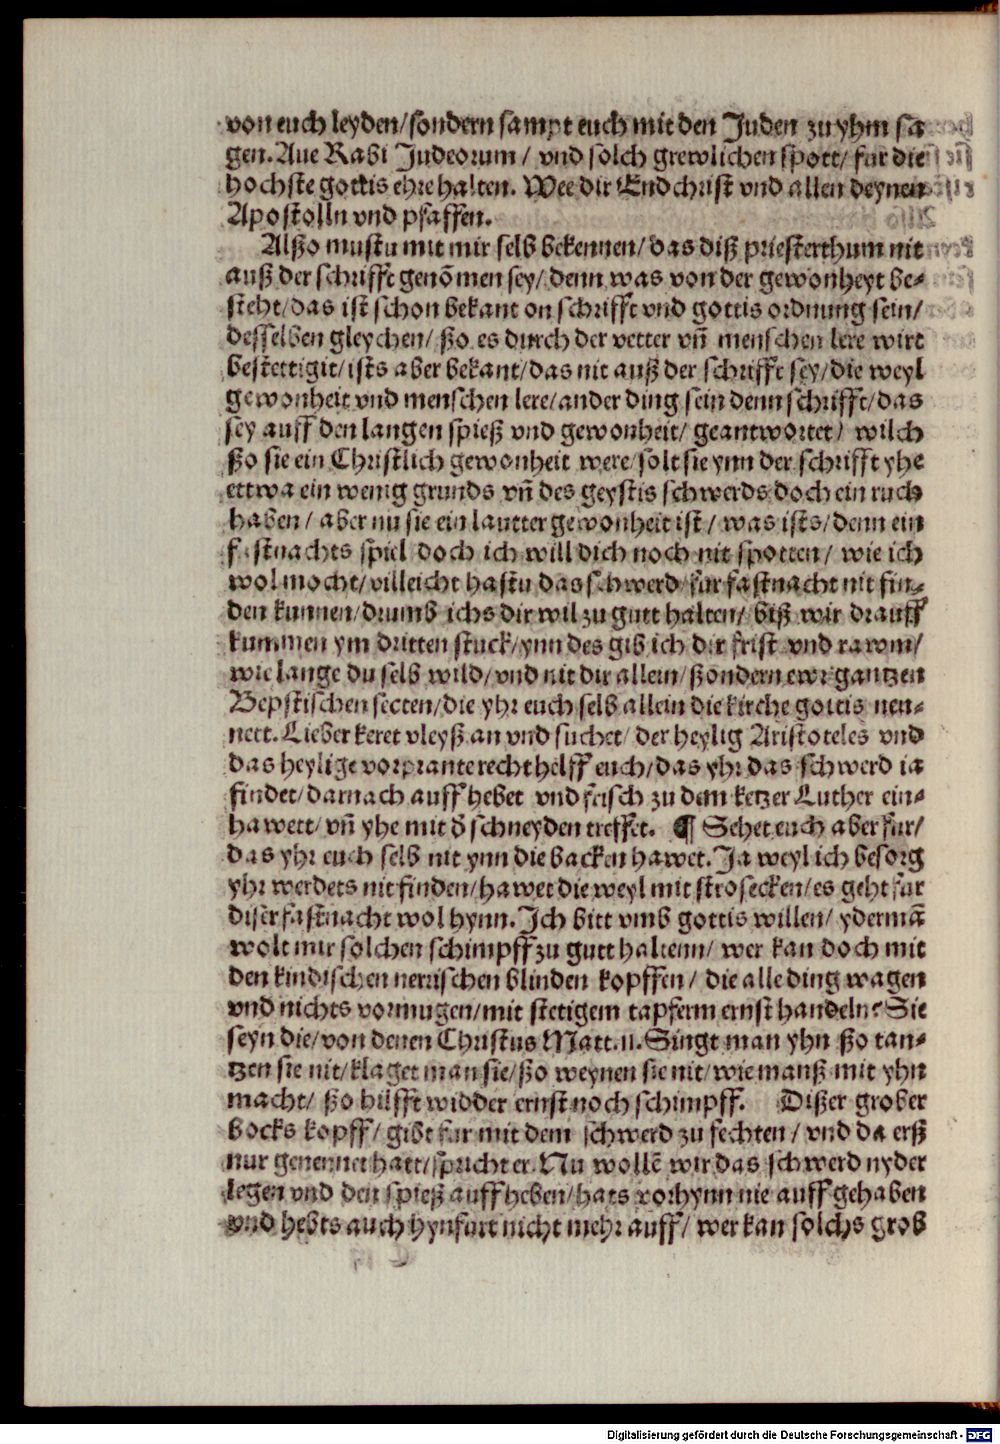 von euch leyden/sondern sampt euch mit den Juden zu yhm sa
gen. Aue Rabi Judeorum / vnd solch grewlichen spott/ fur die
hochste gottis ehre halten. Wee dir Endchrist vnd allen deynen
Apostolln vnd pfaffen.
Alßo mustu mit mir selb bekennen/ das diß priesterthum nit
auß der schrifft genōmen sey/ denn was von der gewonheyt be-
steht/das ist schon bekant on schrifft vnd gottis ordnung sein/
desselben gleychen/ ßo es durch der vetter vn̄ menschen lere wirt
bestettigit/ists aber bekant/das nit auß der schrifft sey/die weyl
gewonheit vnd menschen lere/ander ding sein denn schrifft/das
sey auff den langen spieß vnd gewonheit/ geantwortet/ wilch
ßo sie ein Christlich gewonheit were/solt sie ynn der schrifft yhe
ettwa ein wenig grunds vn̄ des geystis schwerds doch ein ruch
haben/ aber nu sie ein lautter gewonheit ist/ was ists/denn ein
fastnachts spiel doch ich will dich noch nit spotten/ wie ich
wol mocht/villeicht hastu das schwerd fur fastnacht nit fin-
den kunnen/drumb ichs dir wil zu gutt halten/ biß wir drauff
kummen ym dritten stuck/ynn des gib ich dir frist vnd rawm/
wie lange du selb wild/vnd nit dir allein/ßondern ewr gantzen
Bepstischen secten/die yhr euch selb allein die kirche gottis nen-
nett. Lieber keret vleyß an vnd suchet/ der heylig Aristoteles vnd
das heylige vorprante recht helff euch/das yhr das schwerd ia
findet/darnach auff hebet vnd frisch zu dem ketzer Luther ein-
hawett/ vn̄ yhe mit d̄ schneyden treffet. ¶ Sehet euch aber fur/
das yhr euch selb nit ynn die backen hawet. Ja weyl ich besorg
yhr werdets nit finden/hawet die weyl mit strosecken/es geht fur
disēr fastnacht wol hynn. Ich bitt vmb gottis willen/ ydermā
wolt mir solchen schimpff zu gutt haltenn/ wer kan doch mit
den kindischen nerrischen blinden kopffen/ die alle ding wagen
vnd nichts vormugen/mit stetigem tapferm ernst handeln? Sie
seyn die/von denen Christus Matt.11. Singt man yhn ßo tan-
tzen sie nit/klaget man sie/ßo weynen sie nit/wie manß mit yhn
macht/ ßo hilfft widder ernst noch schimpff. Dißer grober
bocks kopff/ gibt fur mit dem schwerd zu fechten/ vnd da erß
nur genennet hatt/spricht er. Nu wollē wir das schwerd nyder
legen vnd den spieß auff heben/hats vorhynn nie auff gehaben
vnd hebts auch hynfurt nicht mehr auff/ wer kan solchs grob
Digitalisierung gefördert durch die Deutsche Forschungsgemeinschaft - DFG